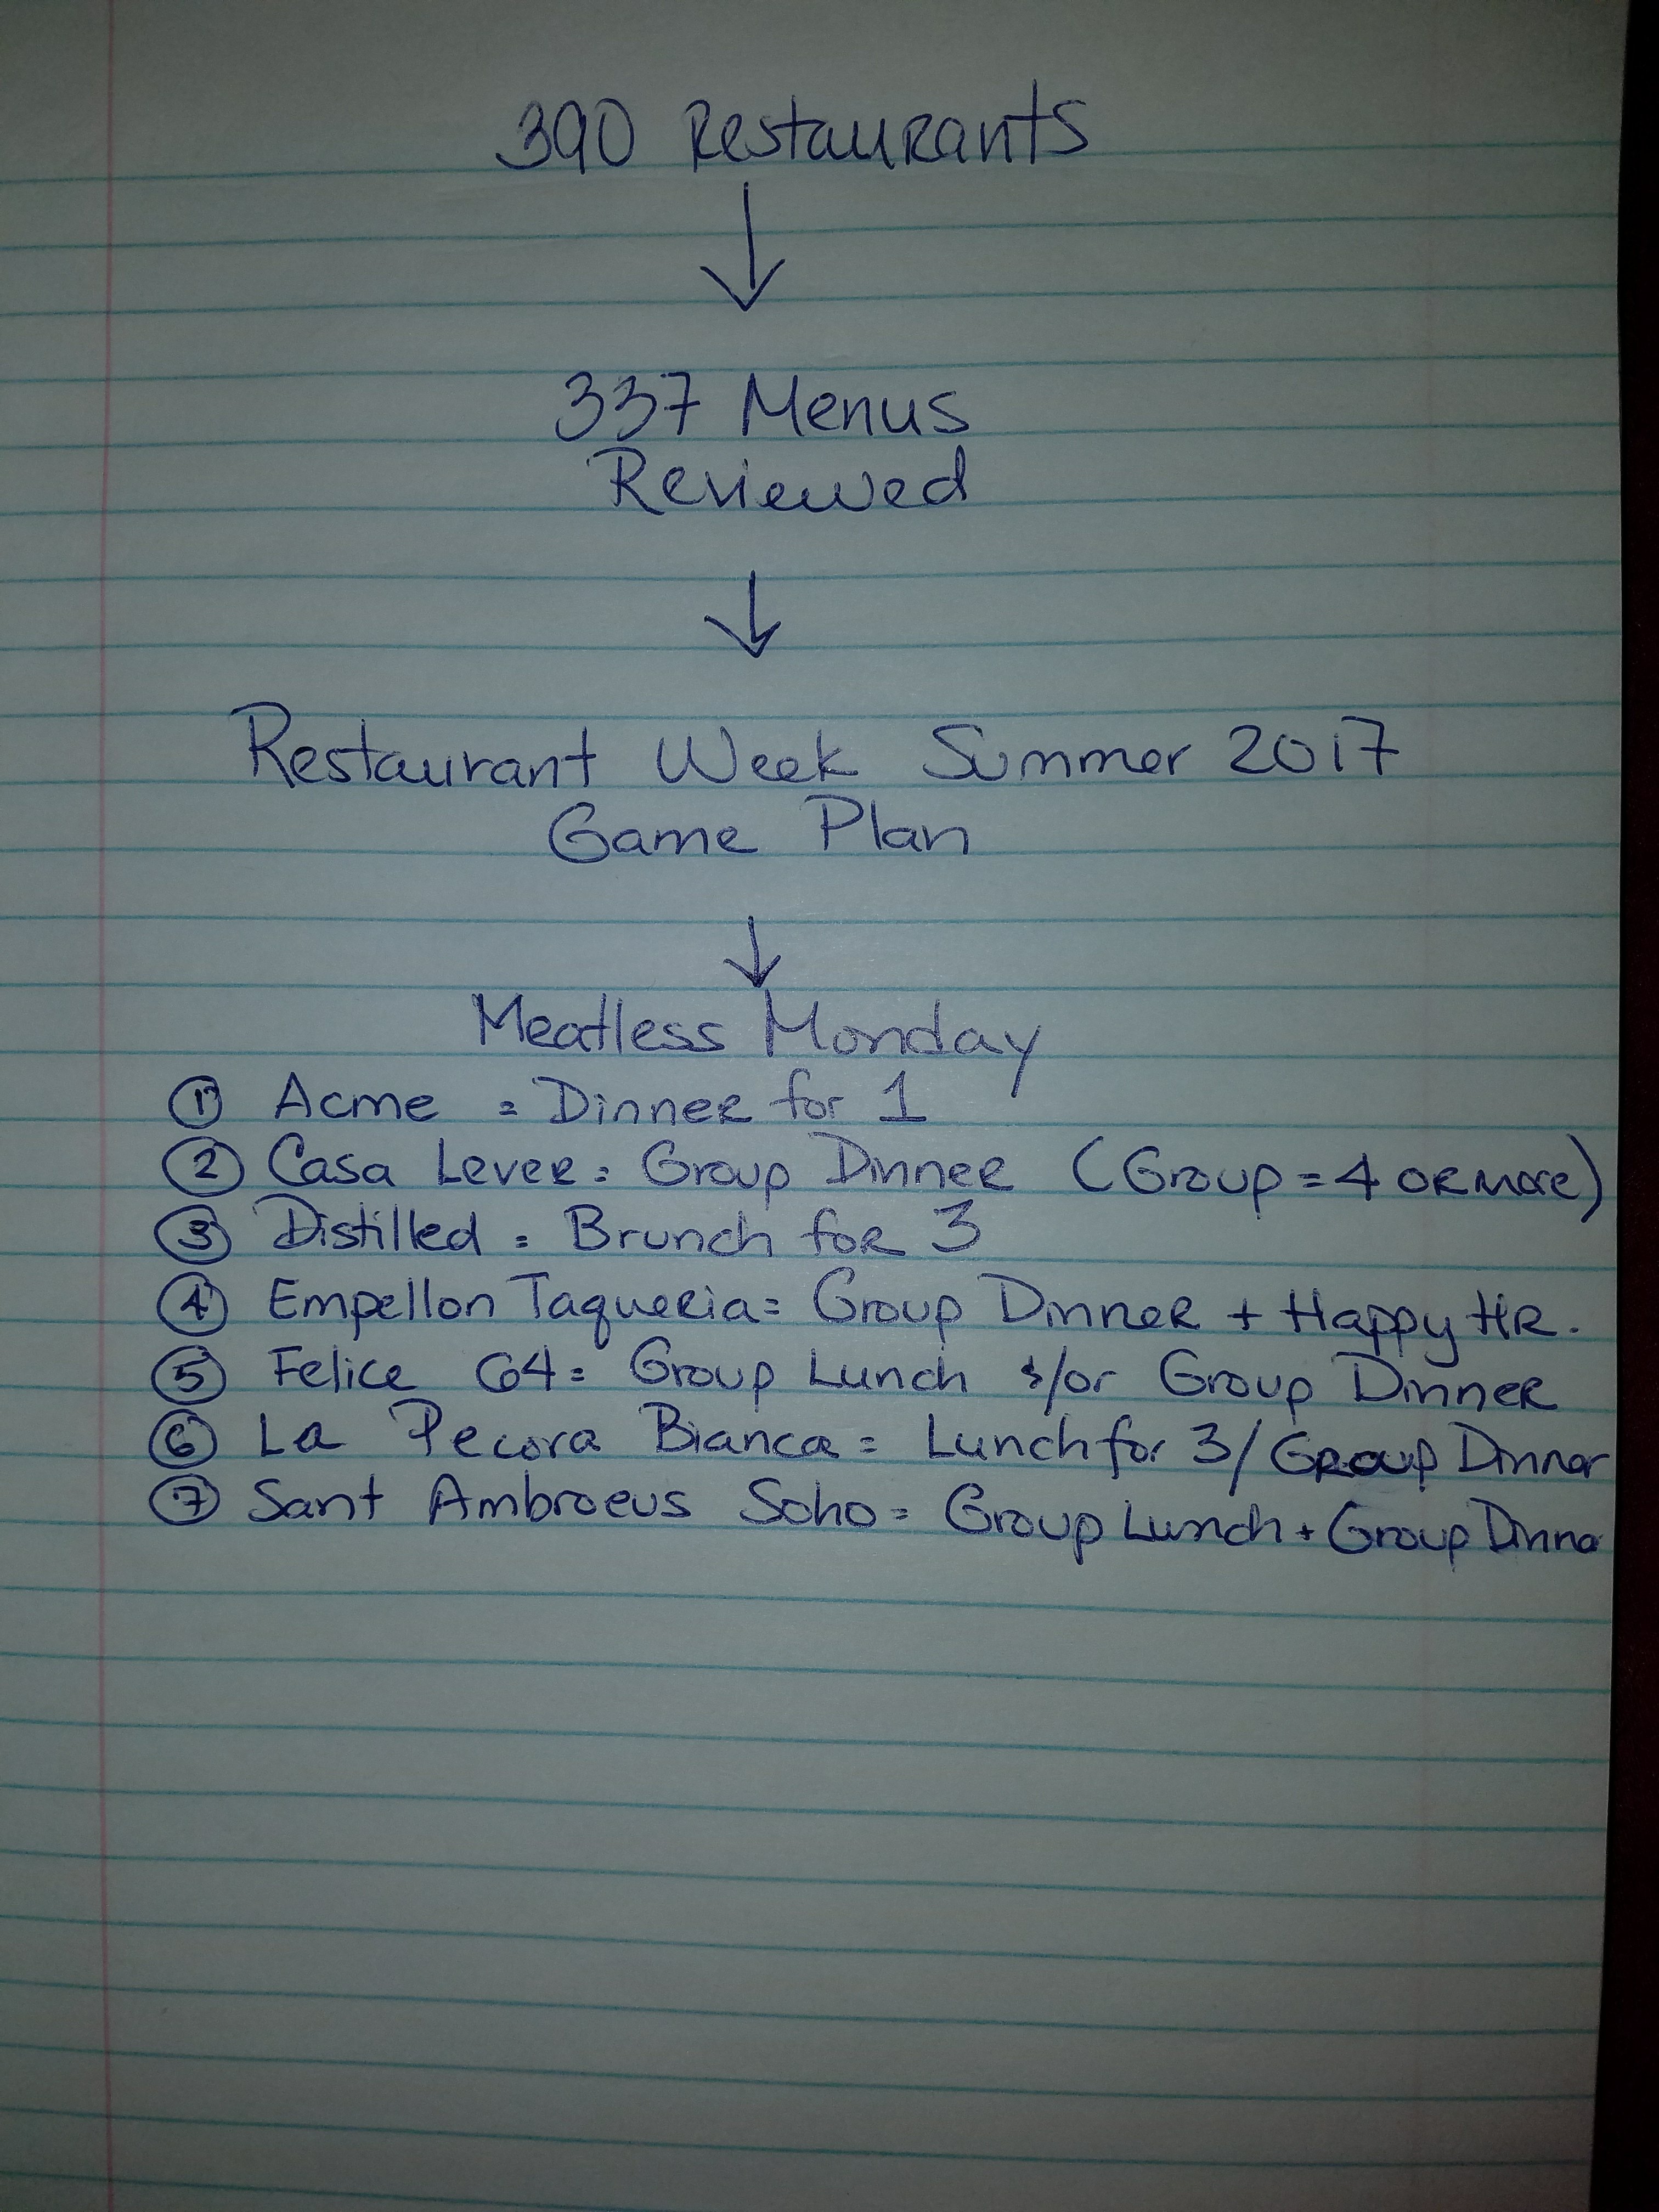 390 Restaurants
337 Menus
Reviewed
Restaurant Week Summer 2017
Game Plan
Meatless Monday
① Acme = Dinner for 1
② Casa Lever = Group Dinner (Group = 4 or more)
③ Distilled = Brunch for 3
④ Empellon Taqueria = Group Dinner + Happy Hr.
⑤ Felice 64 = Group Lunch &/or Group Dinner
⑥ La Pecora Bianca = Lunch for 3/ Group Dinner
⑦ Sant Ambroeus Soho = Group Lunch + Group Dinne